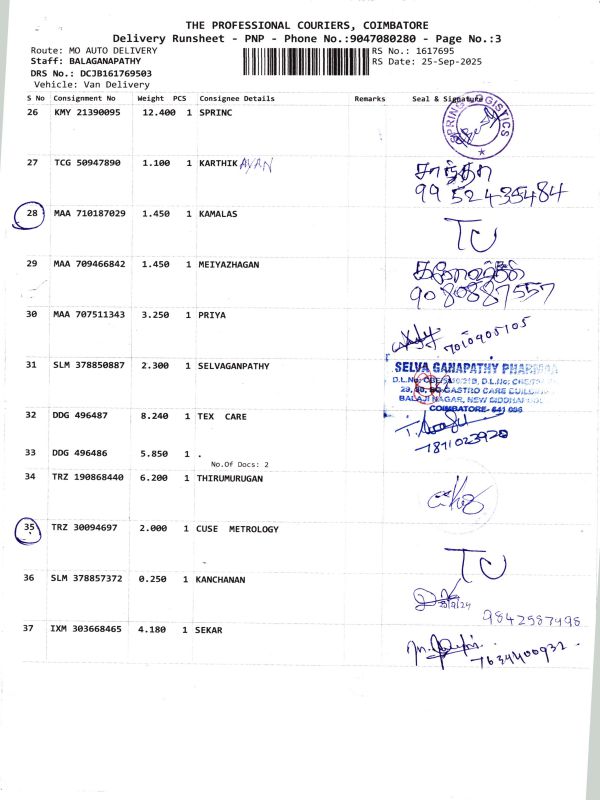 THE PROFESSIONAL COURIERS, COIMBATORE
Delivery Runsheet - PNP - Phone No.:9047080280 - Page No.:3
Route: MO AUTO DELIVERY
RS No.: 1617695
Staff: BALAGANAPATHY
RS Date: 25-Sep-2025
DRS No.: DCJB161769503
Vehicle: Van Delivery
S No Consignment No Weight PCS Consignee Details Remarks Seal & Signature
26 KMY 21390095 12.400 1 SPRINC
SPRING LOGISTICS
27 TCG 50947890 1.100 1 KARTHIK AYAN
சாந்தா
9952435484
28 MAA 710187029 1.450 1 KAMALAS
TC
29 MAA 709466842 1.450 1 MEIYAZHAGAN
9080887557
30 MAA 707511343 3.250 1 PRIYA
7010905105
31 SLM 378850887 2.300 1 SELVAGANPATHY
SELVA GANAPATHY PHARMAA
BALAJI NAGAR, NEW SIDDHA
COIMBATORE- 641
32 DDG 496487 8.240 1 TEX CARE
7871023920
33 DDG 496486 5.850 1 .
No.Of Docs: 2
34 TRZ 190868440 6.200 1 THIRUMURUGAN
35 TRZ 30094697 2.000 1 CUSE METROLOGY
TC
36 SLM 378857372 0.250 1 KANCHANAN
9842587498
37 IXM 303668465 4.180 1 SEKAR
7634400932